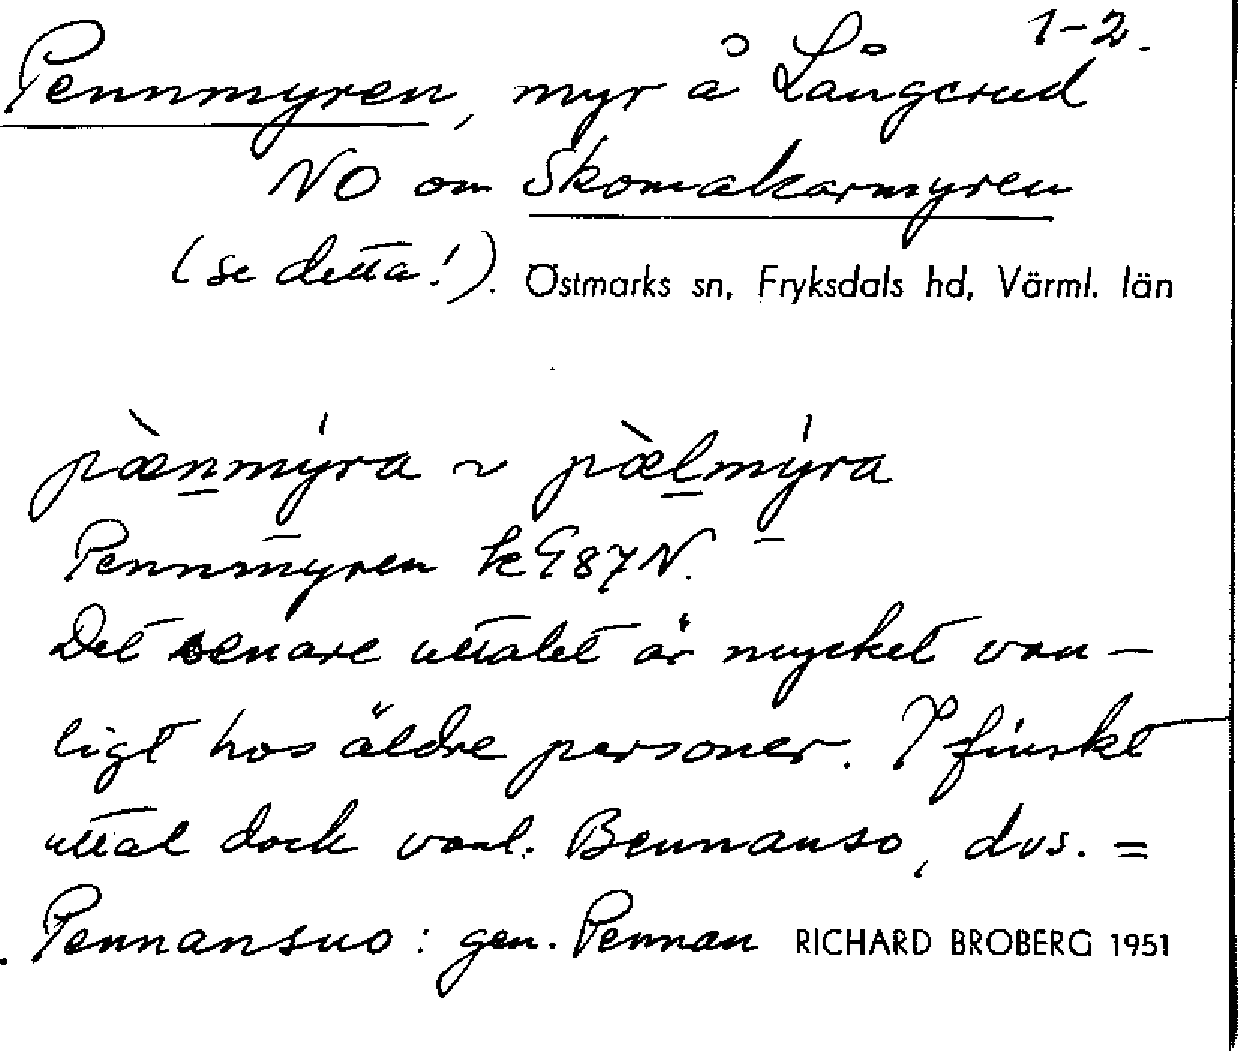 1-2.
Pennmyren, myr å Långerud
NO om Skomakarmyren
(se detta!). Östmarks sn, Fryksdals hd, Värml. län
pæ̀nmýra ~ pæ̀lmýra
Pennmyren k 987 N.
Det senare uttalet är mycket van-
ligt hos äldre personer. I finskt
uttal dock vanl. Bennanso, dvs. =
Pennansuo : gen. Pennan RICHARD BROBERG 1951